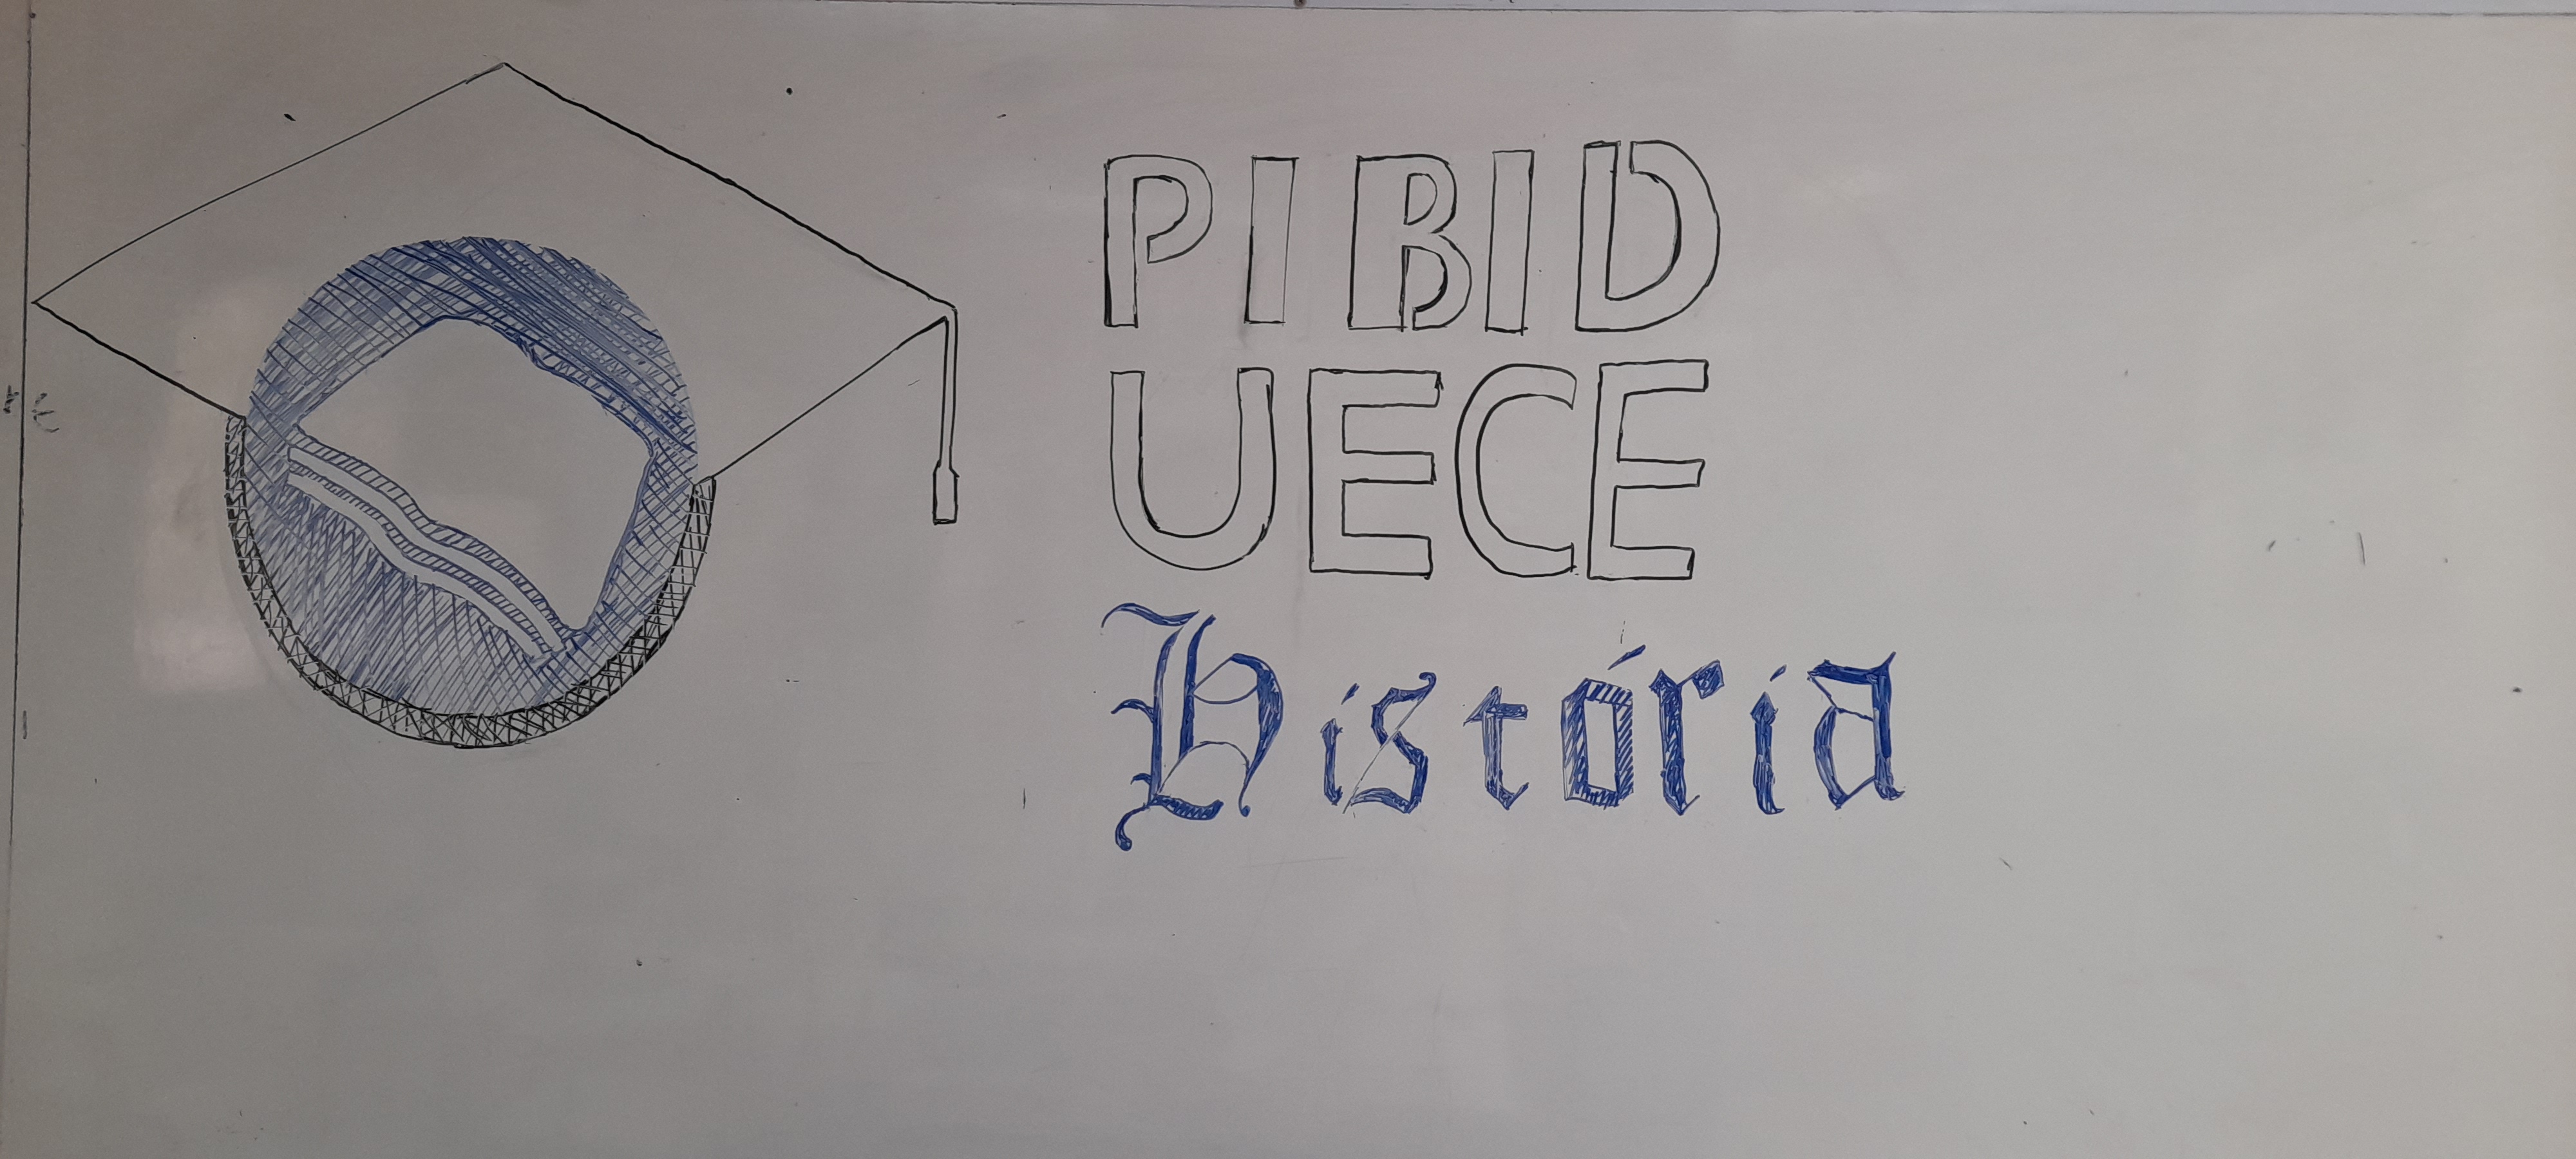 PIBID
UECE
História